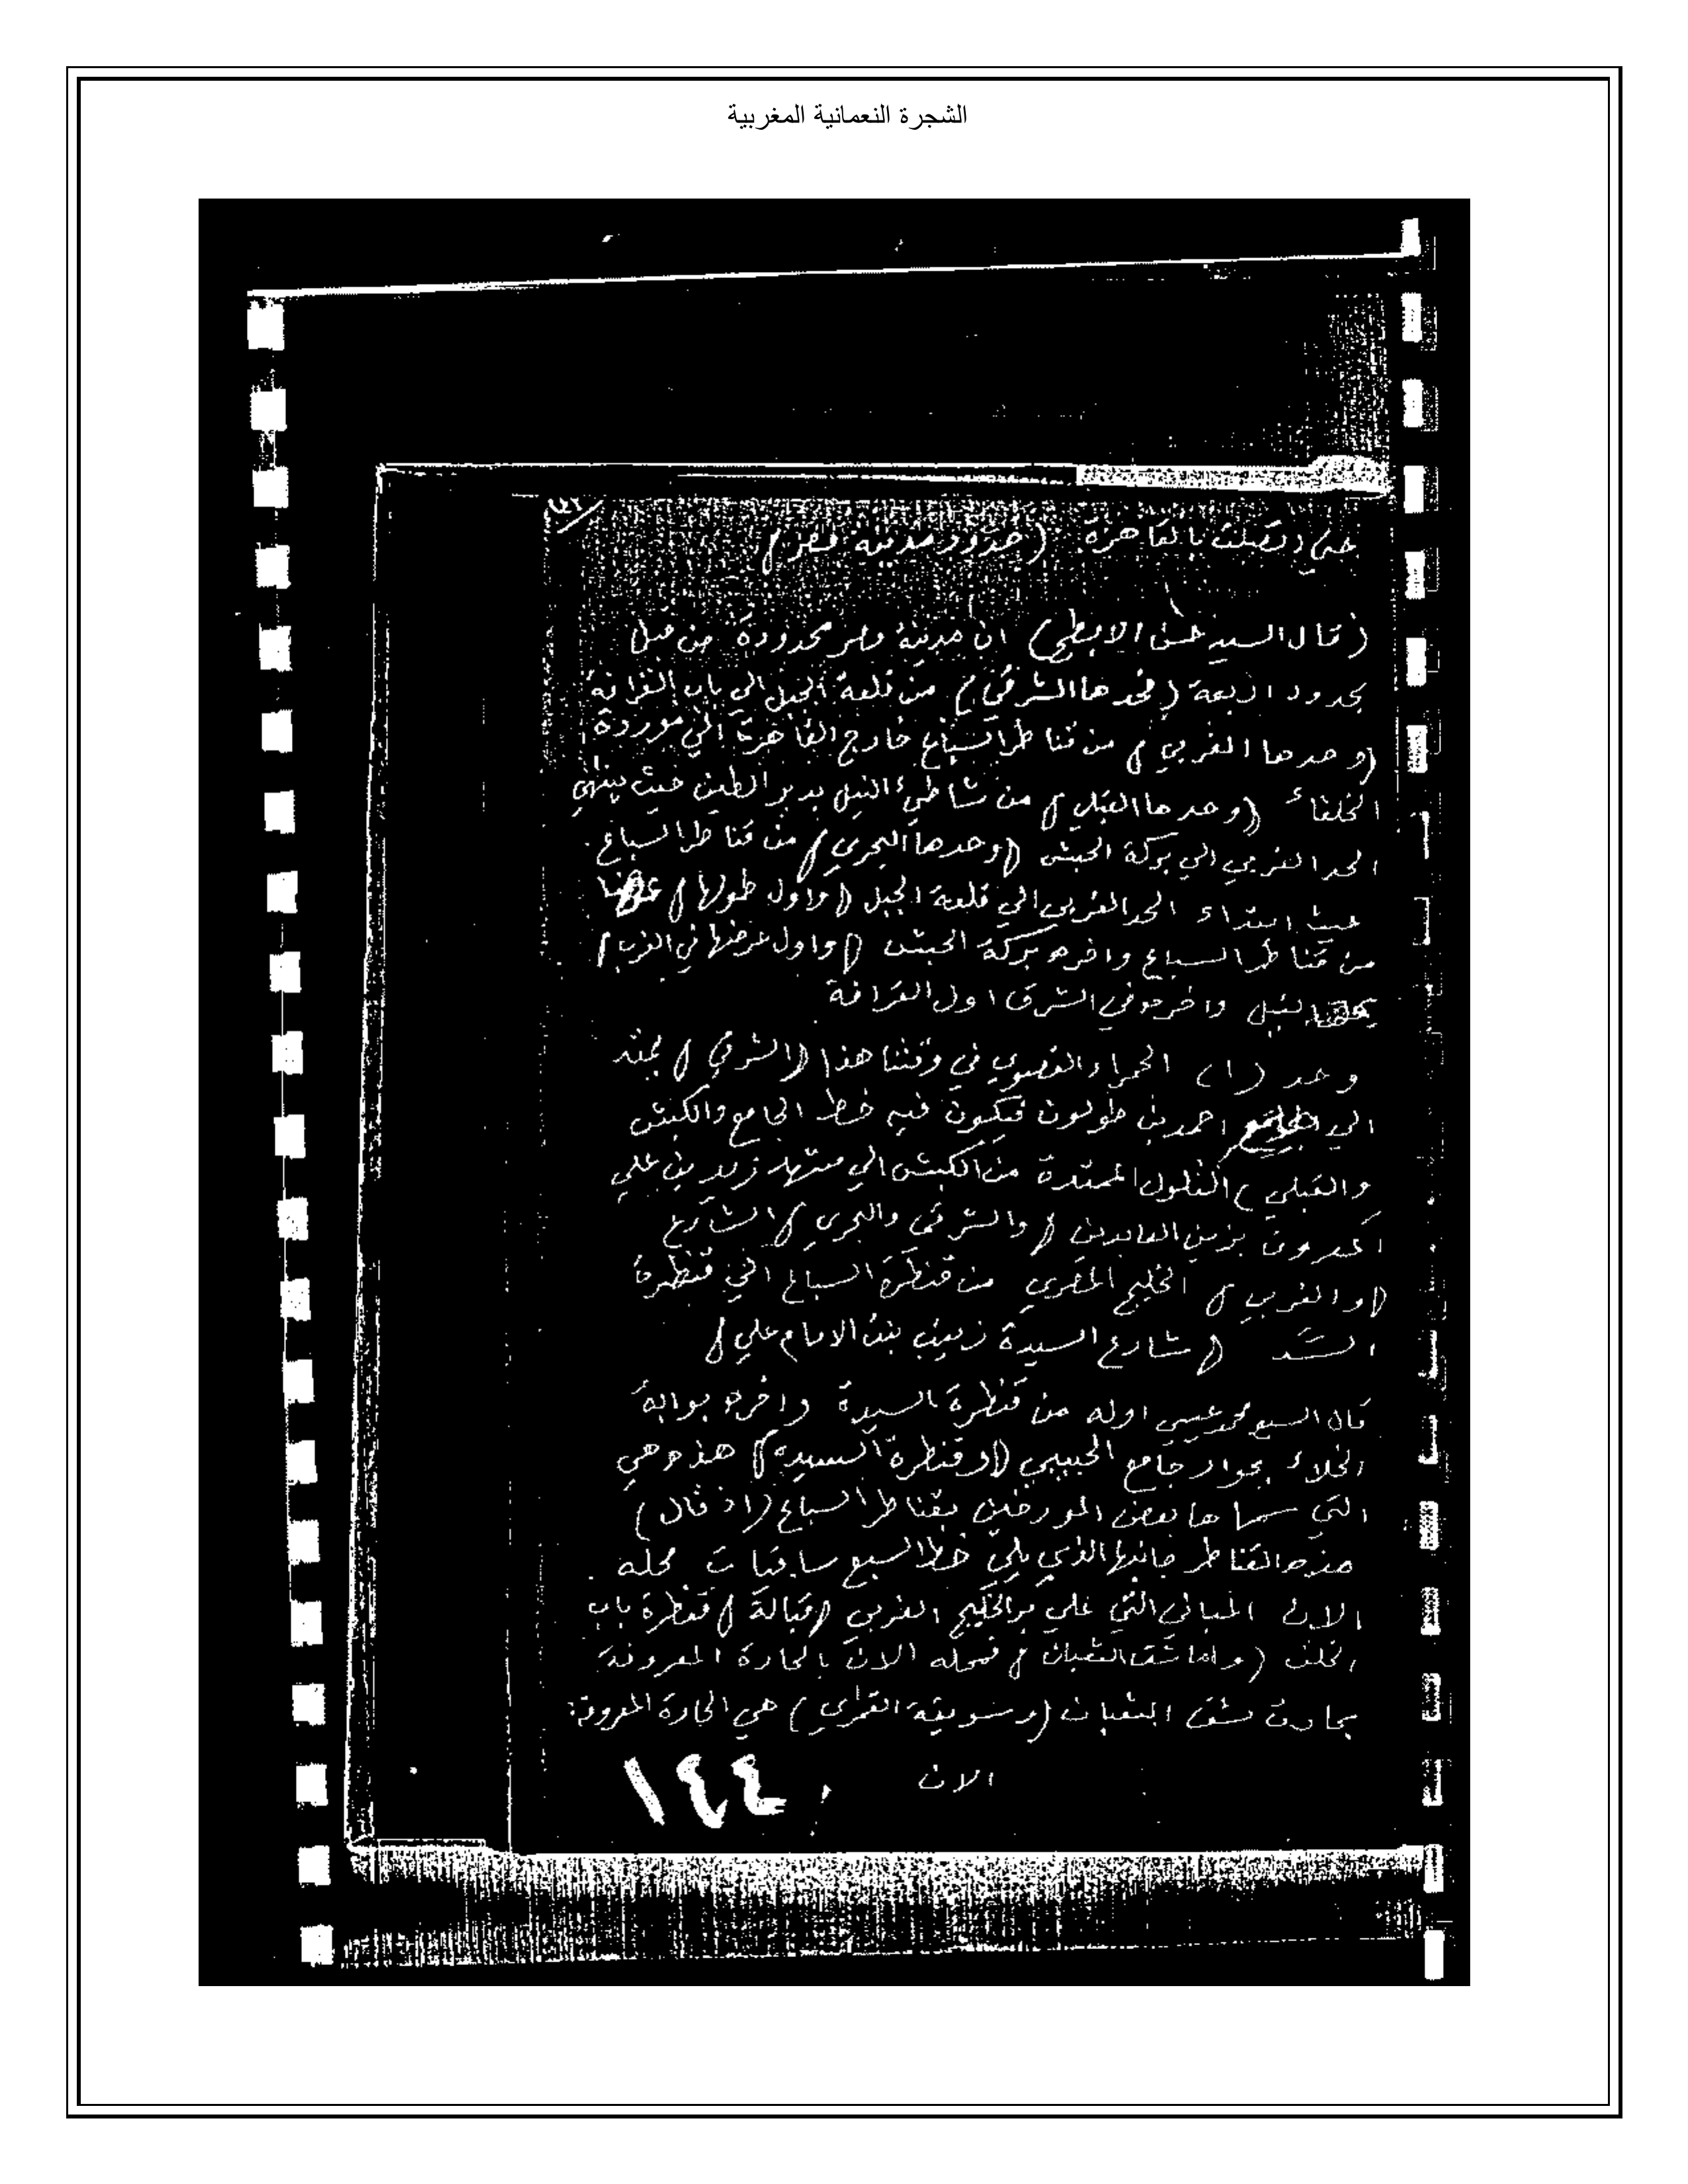 الشجرة النعمانية المغربية
حتى اتصلت بالقاهرة. (حدود مدينة مصر)
(قال السيد حسن الابطحي) ان مدينة مصر محدودة من قبل
بحدود اربعة (فحدها الشرقي) من قلعة الجبل الى باب القرافة
(وحدها الغربي) من قناطر السباع خارج القاهرة الي موردة
الخلفاء (وحدها القبلي) من شاطيء النيل بدير الطين حيث ينتهي
الحد الغربي الي بركة الحبش (وحدها البحري) من قناطر السباع
حيث ابتداء الحد الغربي الي قلعة الجبل (واول طولها)
من قناطر السباع واخره بركة الحبش (واول عرضها في الغرب)
النيل واخره في الشرق اول القرافة
وحد (١) الحمراء القصوي في وقتنا هذا (الشرقي) يمتد
الي الجامع احمد بن طولون فتكون فيه خط الجامع والكبش
والقبلي) التلول الممتدة من الكبش الي مشهد زيد بن علي
المعروف بزين العابدين (والشرقي والبحري) الشارع
(والغربي) الخليج المصري من قنطرة السباع الي قنطرة
السد (شارع السيدة زينب بنت الامام علي)
قال السيد محمد عيسي اوله من قنطرة السيدة واخره بوابة
الخلاء بجوار جامع الحبيبي (وقنطرة السيدة) هذه هي
التي سماها بعض المورخين بقناطر السباع (اذ قال)
هذه القناطر جانبها الذي يلي خط السبع سقايات محله
الان المباني التي علي بر الخليج الغربي (قبالة) قنطرة باب
الخلق (واما شق الثعبان) فمحله الان بالحارة المعروفة
بحارت شق الثعبان (وسويقة القمري) هي الحارة المعروفة
الان
١٤٤